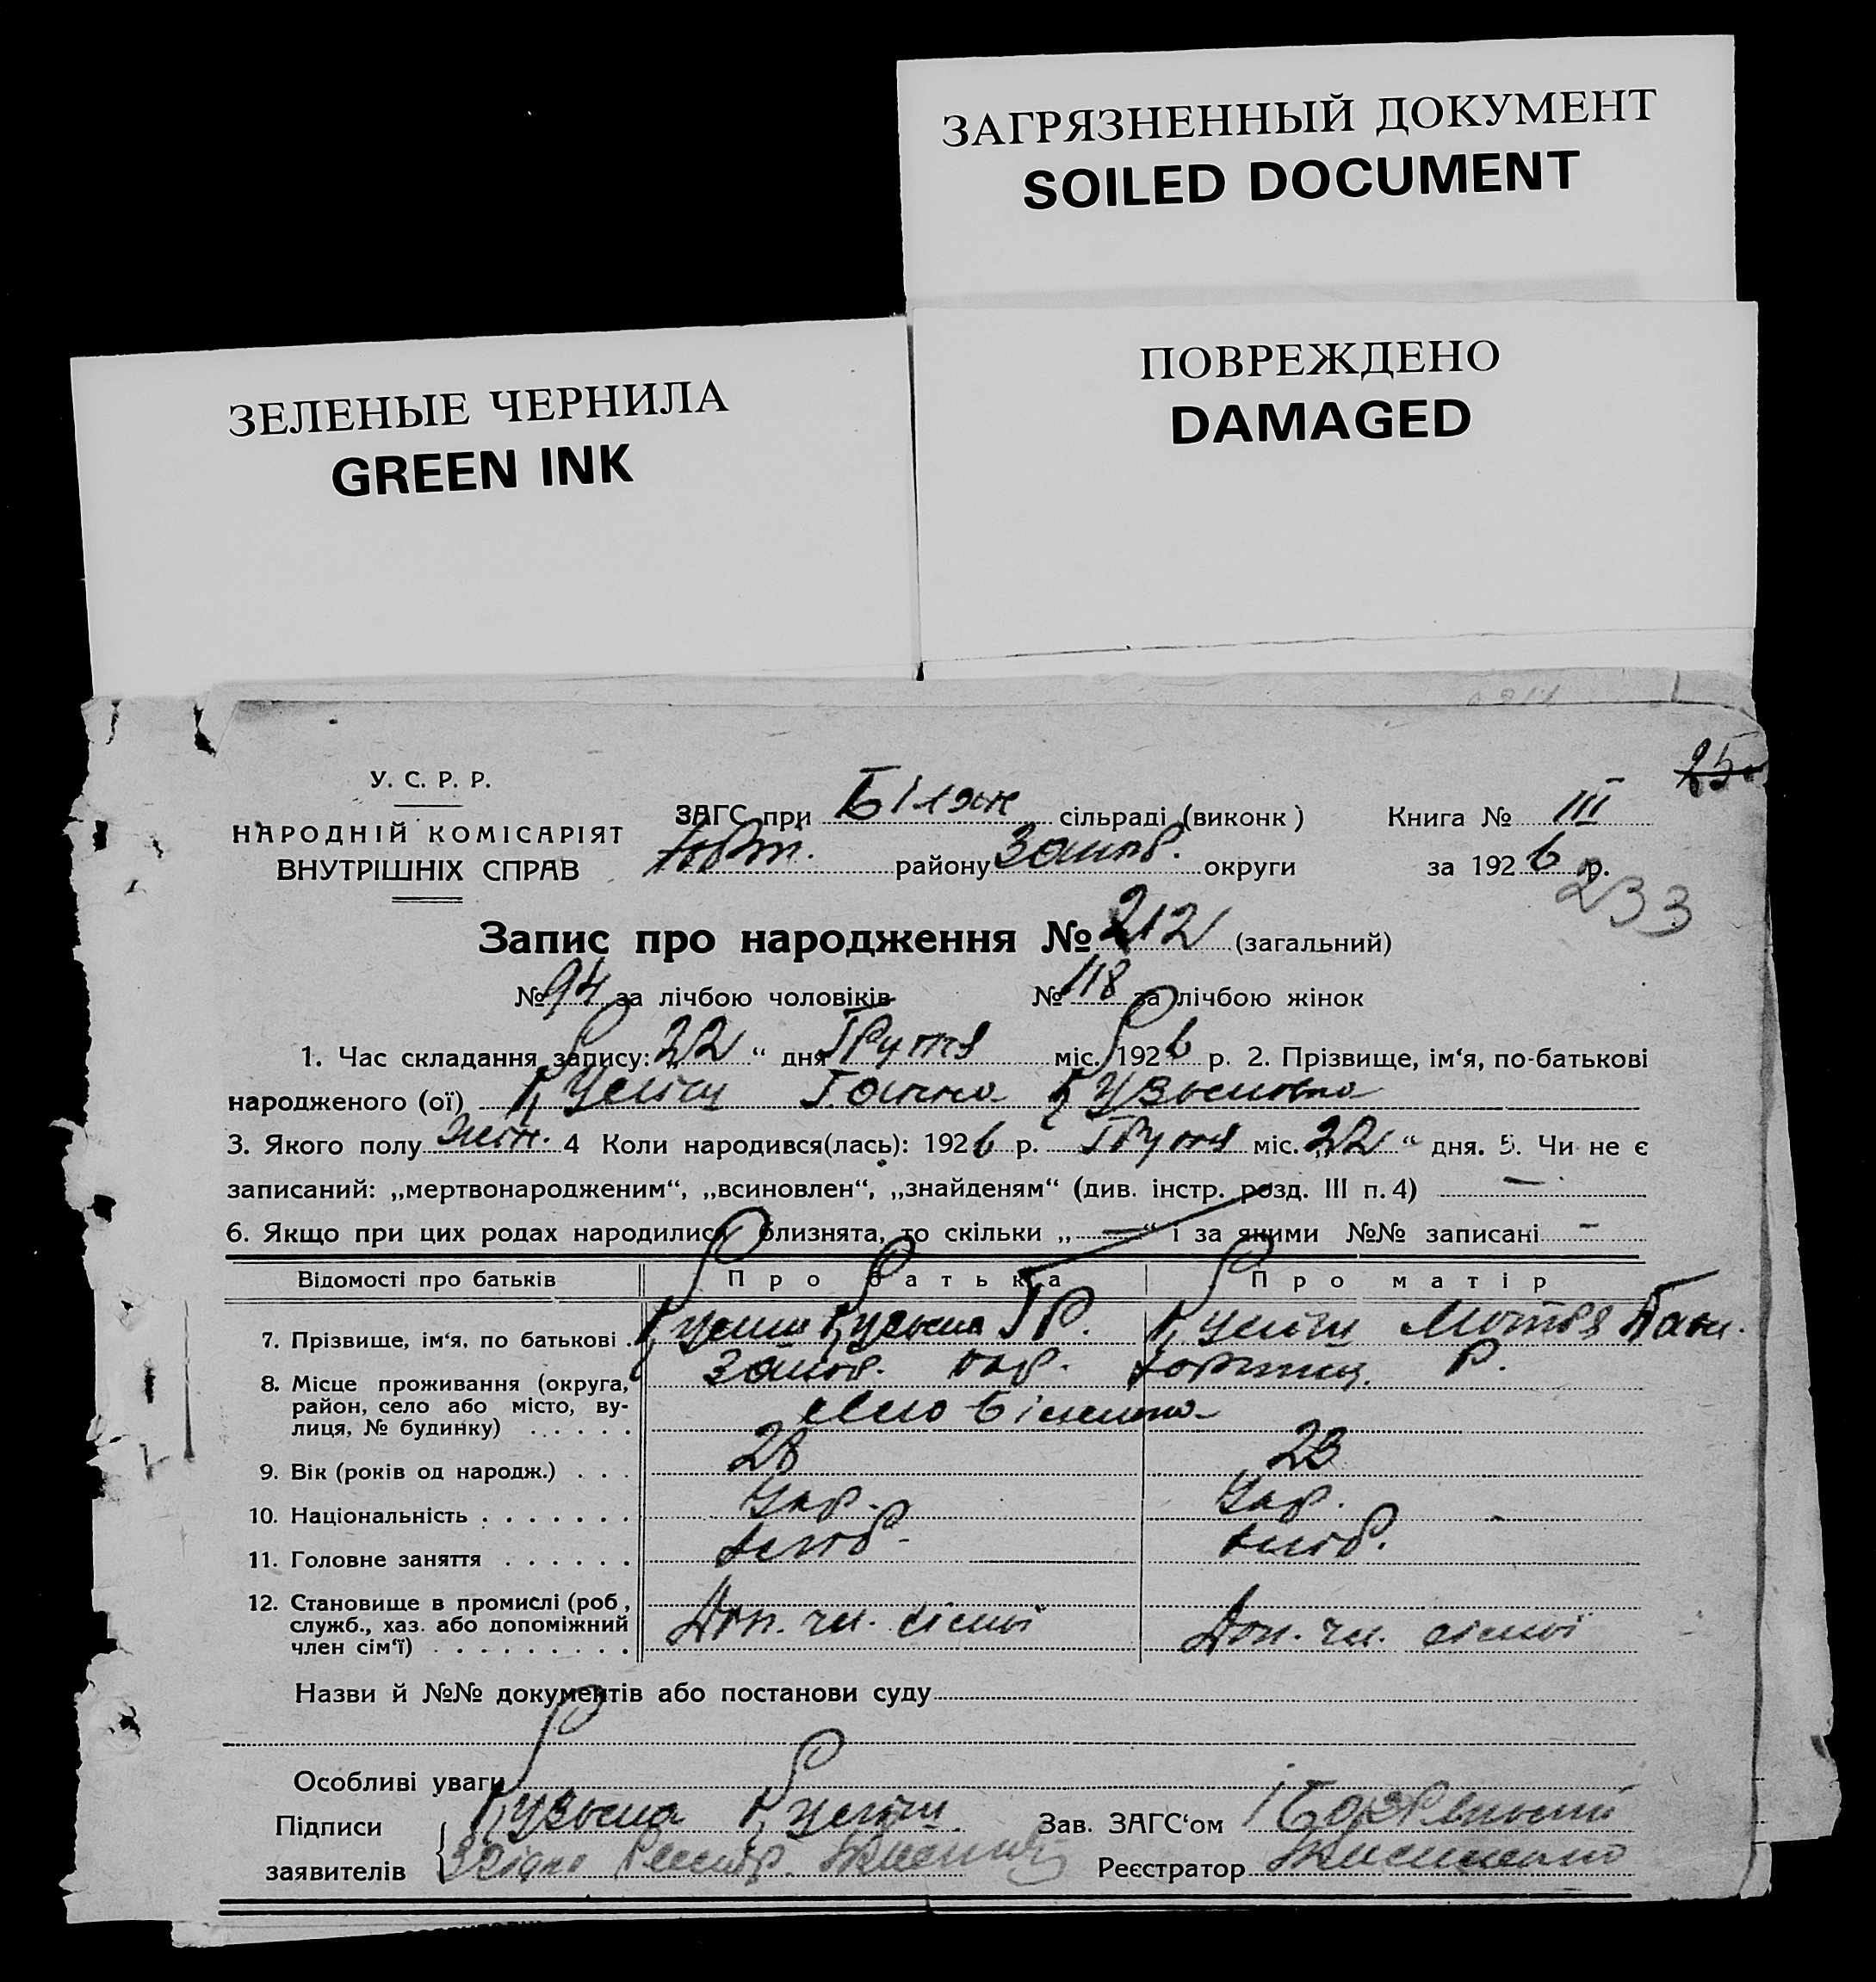 ЗАГРЯЗНЕННЫЙ ДОКУМЕНТ
SOILED DOCUMENT
ПОВРЕЖДЕНО
DAMAGED
ЗЕЛЕНЫЕ ЧЕРНИЛА
GREEN INK
25
У. С. Р. Р.
НАРОДНІЙ КОМІСАРІЯТ
ВНУТРІШНІХ СПРАВ
ЗАГС при Білян сільраді (виконк) Книга № III
Хорт. району Запор. округи за 1926 р.
233
Запис про народження № 212 (загальний)
№ 94 за лічбою чоловіків № 118 за лічбою жінок
1. Час складання запису: „22“ дня Грудня міс. 1926 р. 2. Прізвище, ім‘я, по-батькові
народженого (ої) Ганна Кузьмовна
3. Якого полу жін. 4 Коли народився(лась): 1926 р. Грудня міс. „22“ дня. 5. Чи не є
записаний: „мертвонародженим“, „всиновлен“, „знайденям“ (див. інстр. розд. III п. 4) —
6. Якщо при цих родах народилися близнята, то скільки „—“ і за якими №№ записані —
Відомості про батьків Про батька Про матір
7. Прізвище, ім‘я, по батькові Кузьма Гр. Мотря
8. Місце проживання (округа, район, село або місто, вулиця, № будинку) Запор. окр. Хортиц. р.
село Біленьке
9. Вік (років од народж.) 28 23
10. Національність Укр. Укр.
11. Головне заняття Хлібор. Хлібор.
12. Становище в промислі (роб, служб., хаз. або допоміжний член сім‘ї) Доп. чл. сімьї Доп. чл. сімьї
Назви й №№ документів або постанови суду
Особливі уваги
Підписи заявителів Кузьма
Зав. ЗАГС‘ом
Реєстратор